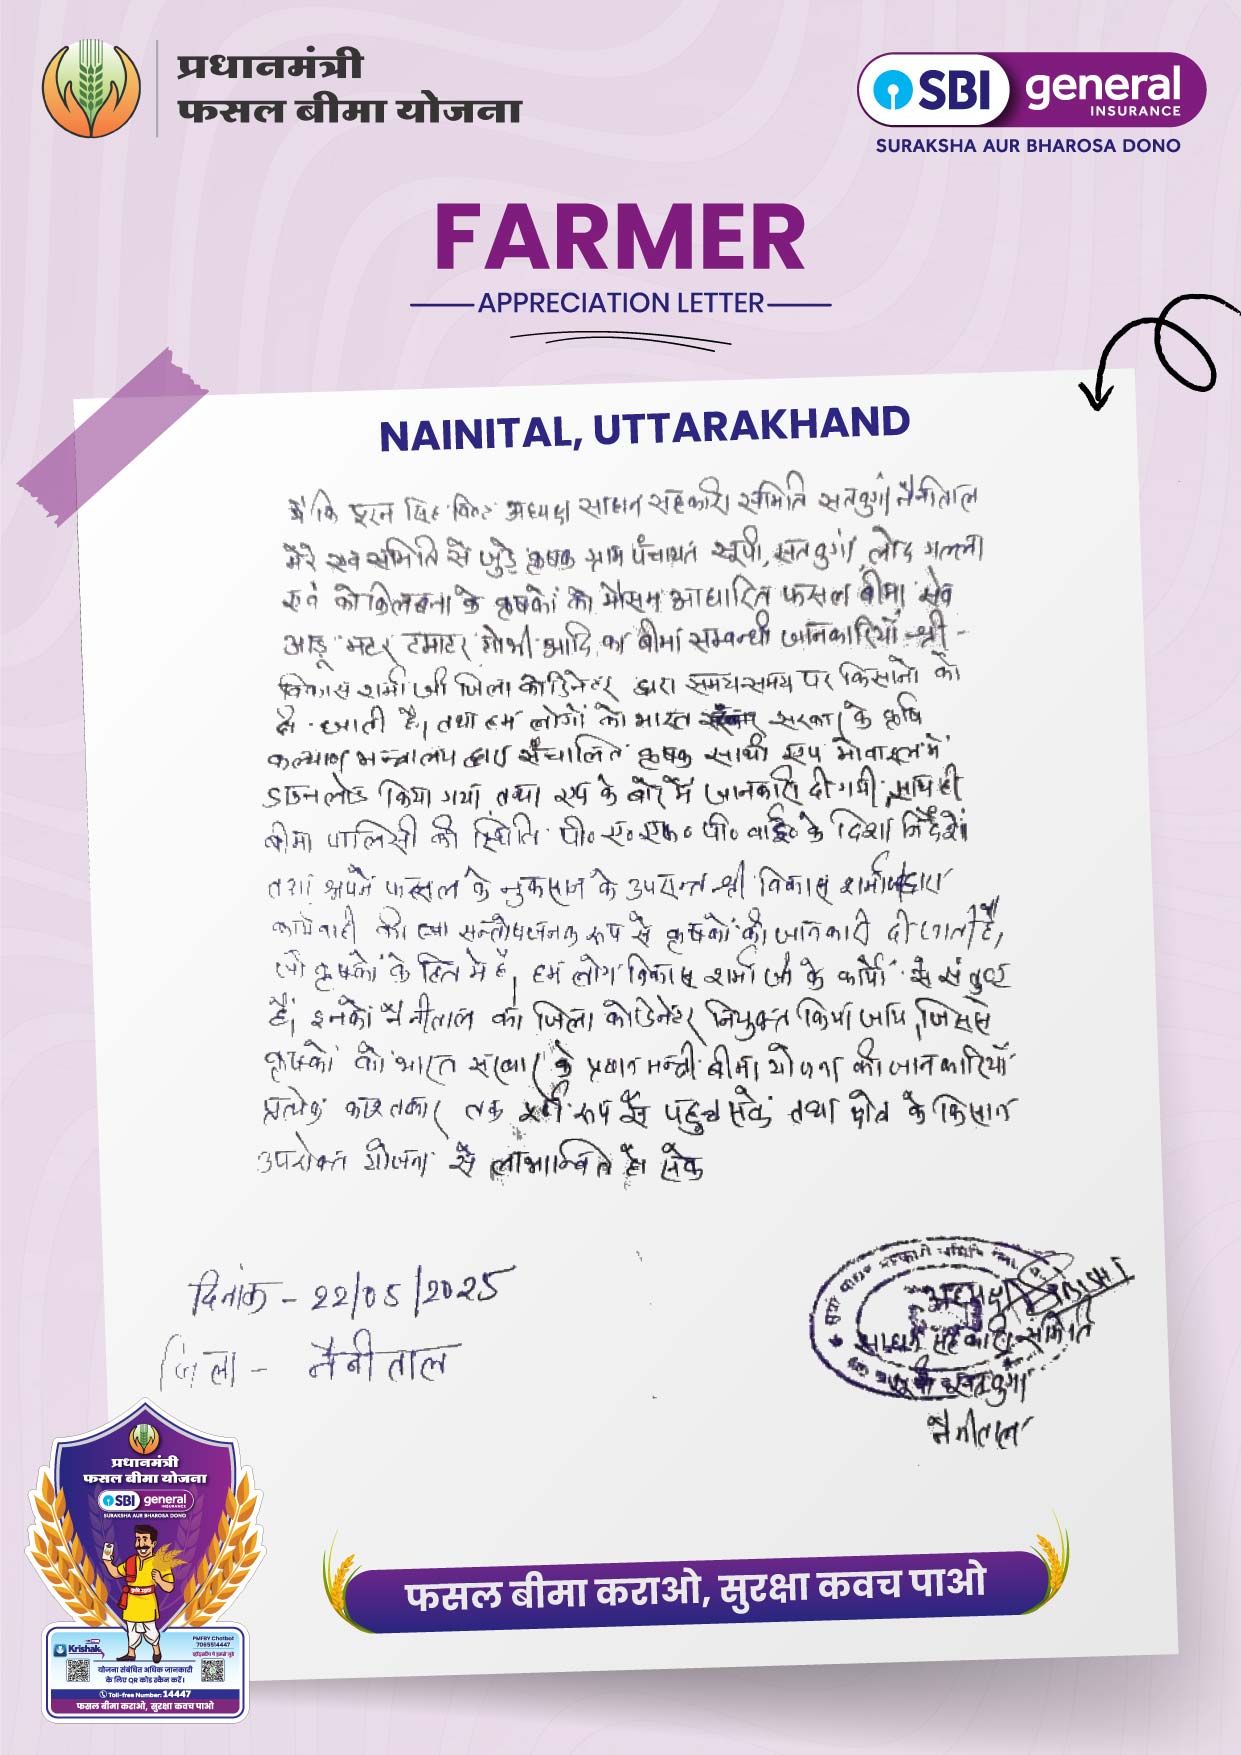 प्रधानमंत्री
फसल बीमा योजना
SBI general
INSURANCE
SURAKSHA AUR BHAROSA DONO
FARMER
APPRECIATION LETTER
NAINITAL, UTTARAKHAND
मै कि पूरन सिंह बिष्ट अध्यक्ष साधन सहकारी समिति सतबुंगा नैनीताल
मेरे एवं समिति से जुड़े कृषक ग्राम पंचायत सूपी, सतबुंगा, लोद गल्ला
एवं के कृषकों को मौसम आधारित फसल बीमा सेव
आडू मटर टमाटर गोभी आदि का बीमा सम्बन्धी जानकारियाँ श्री -
विकास शर्मा जी जिला कोडिनेटर द्वारा समय-समय पर किसानो को
दी जाती है, तथा हम लोगों को भारत सरकार के कृषि
कल्याण मन्त्रालय द्वारा संचालित कृषक साथी एप मोबाइल में
डाउनलोड किया गया, तथा एप के बारे में जानकारी दी गयी, साथ ही
बीमा पालिसी की स्थिति पी० एम० एफ० पी० वाई० के दिशा निर्देशों
तथा अपने फसल के नुकसान के उपरान्त श्री विकास शर्मा द्वारा
कार्यवाही की तथा सन्तोषजनक रूप से कृषकों को जानकारी दी जाती है,
जो कृषकों के हित में है, हम लोग विकास शर्मा जी के कार्यो से संतुष्ट
हैं, इनको नैनीताल का जिला कोडिनेटर नियुक्त किया जाय, जिससे
कृषकों को भारत सरकार के प्रधान मन्त्री बीमा योजना की जानकारियाँ
प्रत्येक काश्तकार तक रूप से पहुच सकें तथा क्षेत्र के किसान
उपरोक्त योजना से लाभान्वित हो सके
दिनांक - 22/05/2025
जिला - नैनीताल
अध्यक्ष
साधन सहकारी समिति
सूपी सतबुंगा
नैनीताल
प्रधानमंत्री
फसल बीमा योजना
SBI general
INSURANCE
SURAKSHA AUR BHAROSA DONO
Krishak
PMFBY Chatbot
7065514447
योजना संबंधित अधिक जानकारी
के लिए QR कोड स्कैन करें।
Toll-free Number: 14447
फसल बीमा कराओ, सुरक्षा कवच पाओ
फसल बीमा कराओ, सुरक्षा कवच पाओ